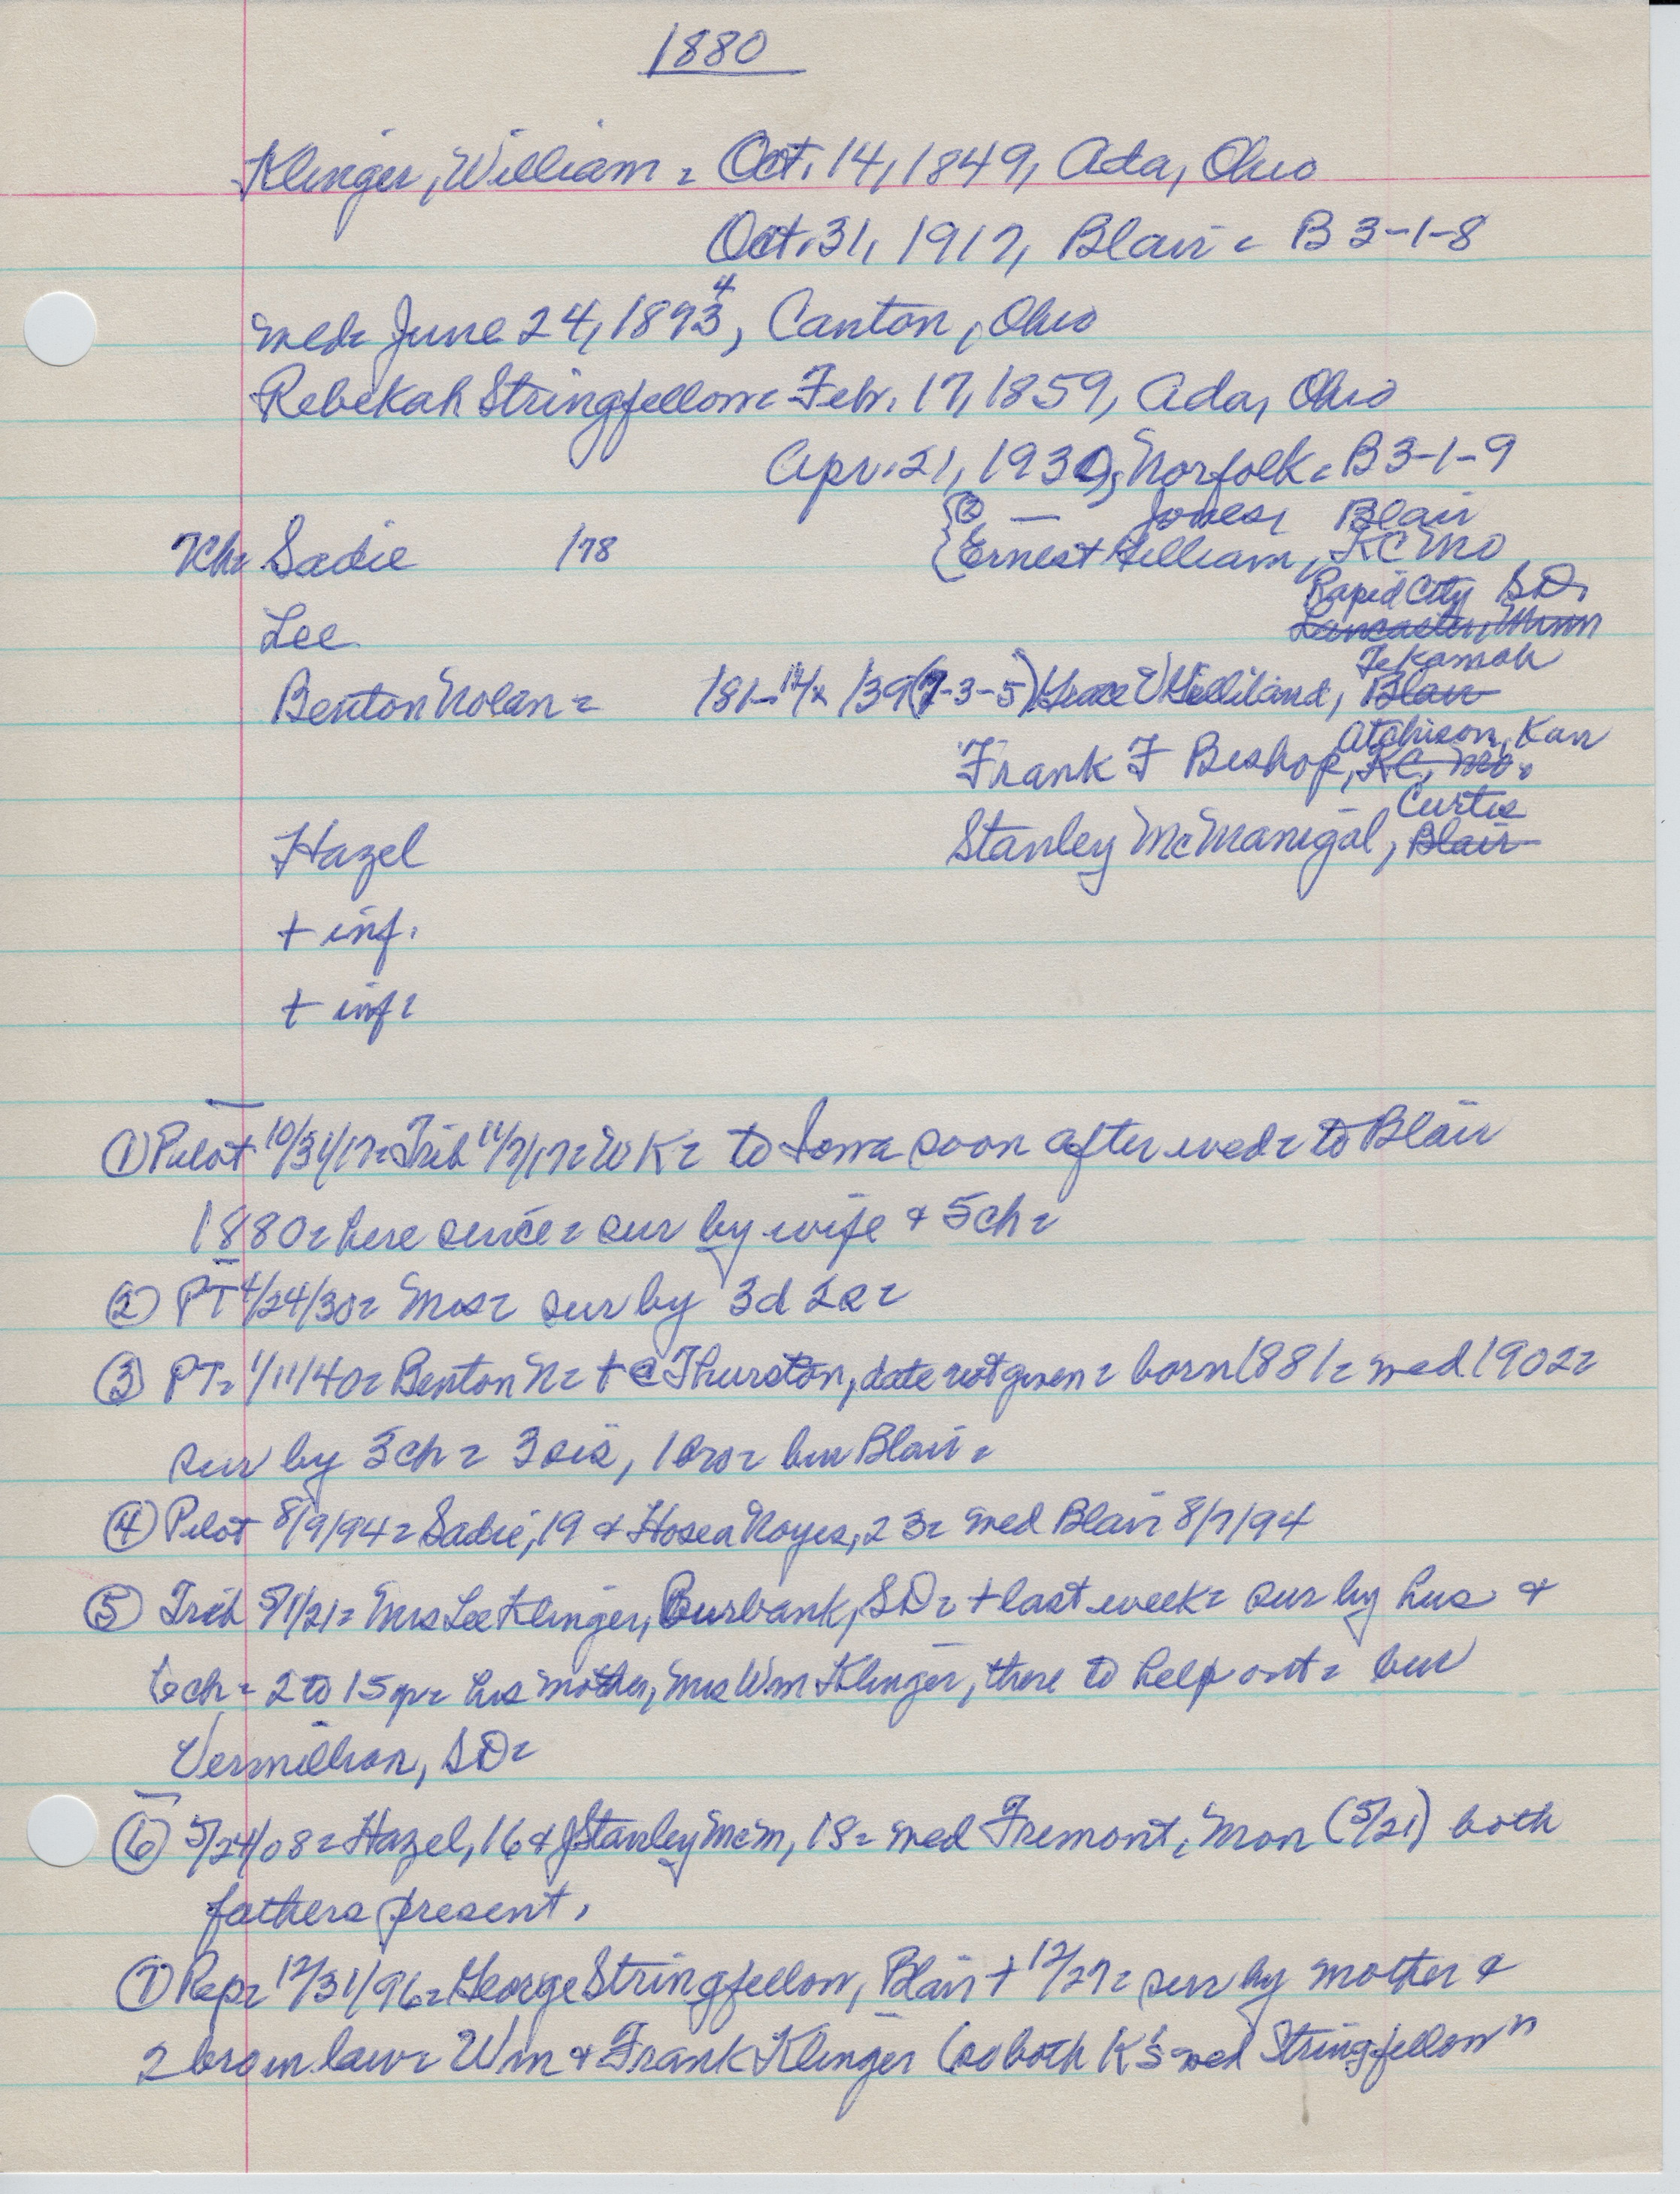 1880
Klinger, William = Oct. 14, 1849, Ada, Ohio
Oct. 31, 1917, Blair = B 3-1-8
4
wed = June 24, 1893, Canton, Ohio
Rebekah Stringfellow = Feb. 17, 1859, Ada, Ohio
Apr. 21, 1930, Norfolk = B 3-1-9
② — Jones, Blair
7ch = Sadie 178 Ernest Gilliam, KC MO
Rapid City SD.
Lee Lancaster, Minn
Tekamah
Benton Nolan = 181-12/x 139 (7-3-5) Grace V Gilliland, Blair
Atchison, Kan
Frank F Bishop, KC, Mo.
Curtis
Hazel Stanley McManigal, Blair
+ inf.
+ inf =
① Pilot 10/31/17 = Trib 11/7/17 = W K = to Iowa soon after wed = to Blair
1880 = here since = sur by wife & 5ch =
② PT 4/24/30 = Mrs = sur by 3d 2s =
③ PT = 1/11/40 = Benton N = + @ Thurston, date not given = born 1881 = wed 1902 =
sur by 3ch = 3 sis, 1 bro = bur Blair =
④ Pilot 8/9/94 = Sadie, 19 & Hosea Noyes, 23 = wed Blair 8/7/94
⑤ Trib 5/1/21 = Mrs Lee Klinger, Burbank, SD = + last week = sur by hus &
6ch = 2 to 15 yr = his mother, Mrs Wm Klinger, there to help out = bur
Vermillion, SD =
⑥ 5/24/08 = Hazel, 16 & J Stanley McM, 18 = wed Fremont, Mon (5/21) both
fathers present.
⑦ Rep = 12/31/96 = George Stringfellow, Blair + 12/27 = sur by mother &
2 bro in law = Wm & Frank Klinger (so both K's wed Stringfellow"